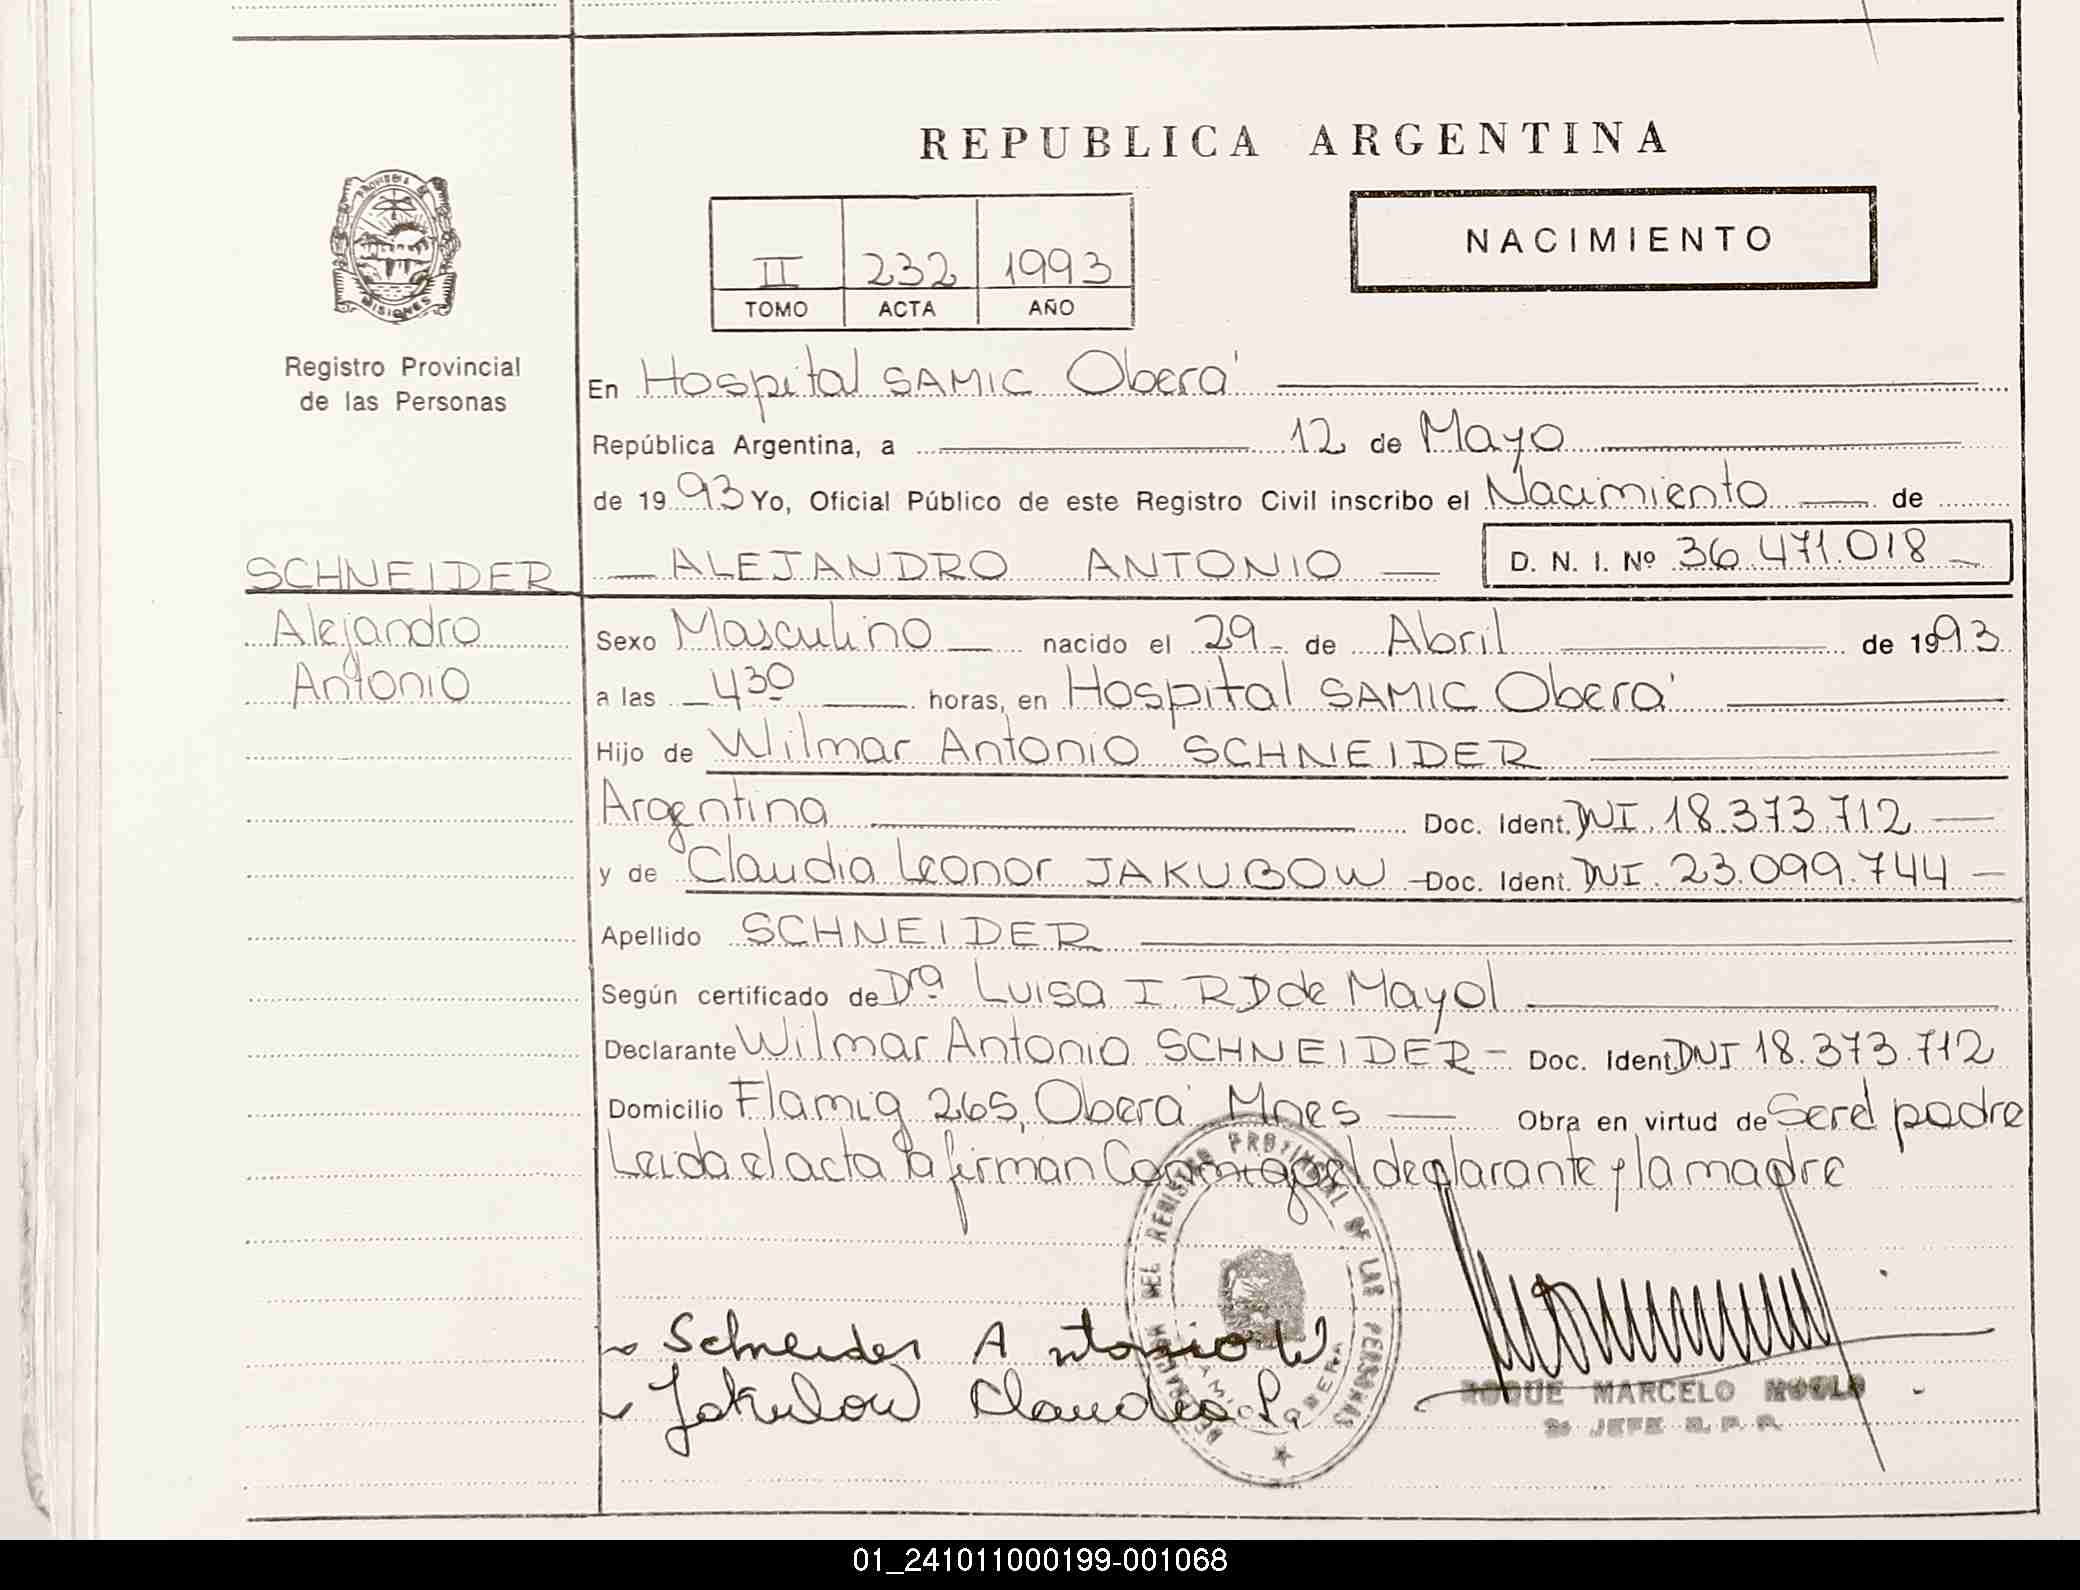 REPUBLICA ARGENTINA
PROVINCIA DE
MISIONES
Registro Provincial
de las Personas
II 232 1993
TOMO ACTA AÑO
NACIMIENTO
En Hospital SAMIC Oberá
República Argentina, a 12 de Mayo
de 1993 Yo, Oficial Público de este Registro Civil inscribo el Nacimiento de
SCHNEIDER ALEJANDRO ANTONIO D. N. I. Nº 36.471.018
Alejandro Sexo Masculino nacido el 29 de Abril de 1993
Antonio a las 4 30 horas, en Hospital SAMIC Oberá
Hijo de Wilmar Antonio SCHNEIDER
Argentina Doc. Ident. DNI 18.373.712
y de Claudia Leonor JAKUBOW Doc. Ident. DNI. 23.099.744
Apellido SCHNEIDER
Según certificado de Dra Luisa I RD de Mayol
Declarante Wilmar Antonio SCHNEIDER - Doc. Ident DNI 18.373.712
Domicilio Flamig 265, Oberá Mnes Obra en virtud de Ser el padre
Leida el acta la firman Conmigo el declarante y la madre
DEL REGISTRO PROVINCIAL DE LAS PERSONAS
OBERA
Schneider Antonio W
Jakubow Claudia L.
ROQUE MARCELO
2º JEFE R. P. P.
01_241011000199-001068